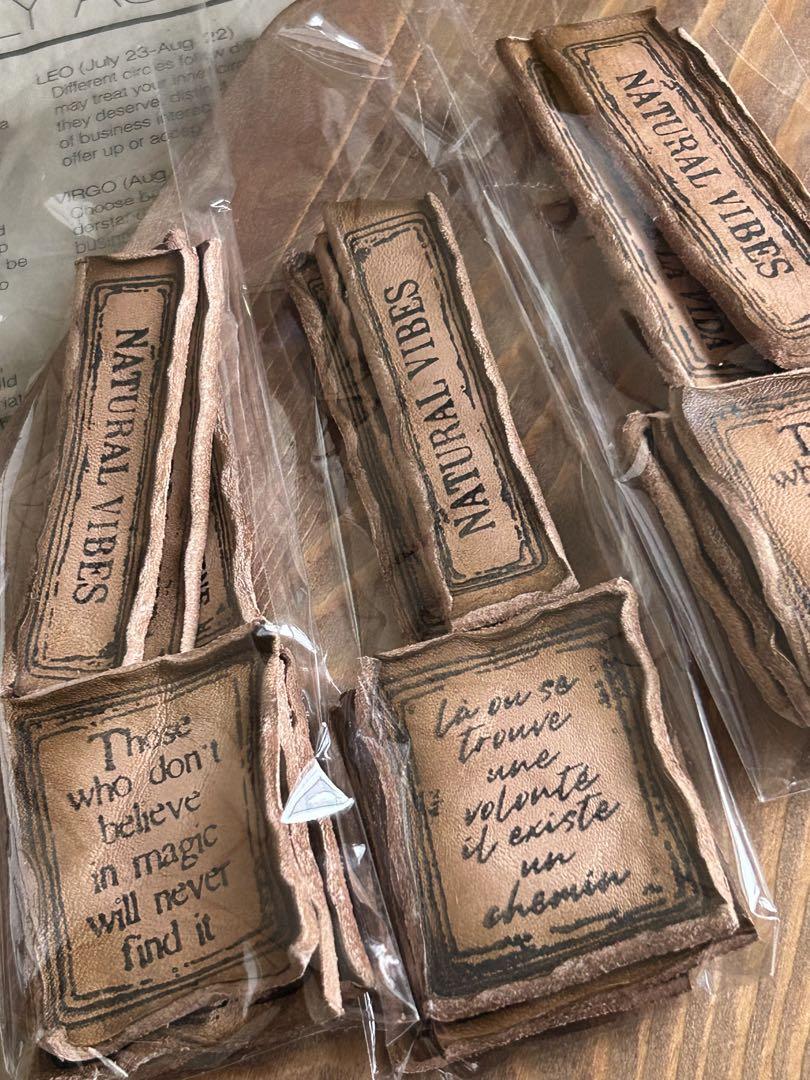 LY
LEO (July 23-Aug 22)
Different circles
may treat your inne
they deserve
of business
offer up or
VIRGO (Aug
Choose
be
NATURAL VIBES
NATURAL VIBES
NATURAL VIBES
VIDA
Those
who don't
believe
in magic
will never
find it
Là ou se
trouve
une
volonté
il existe
un
chemin